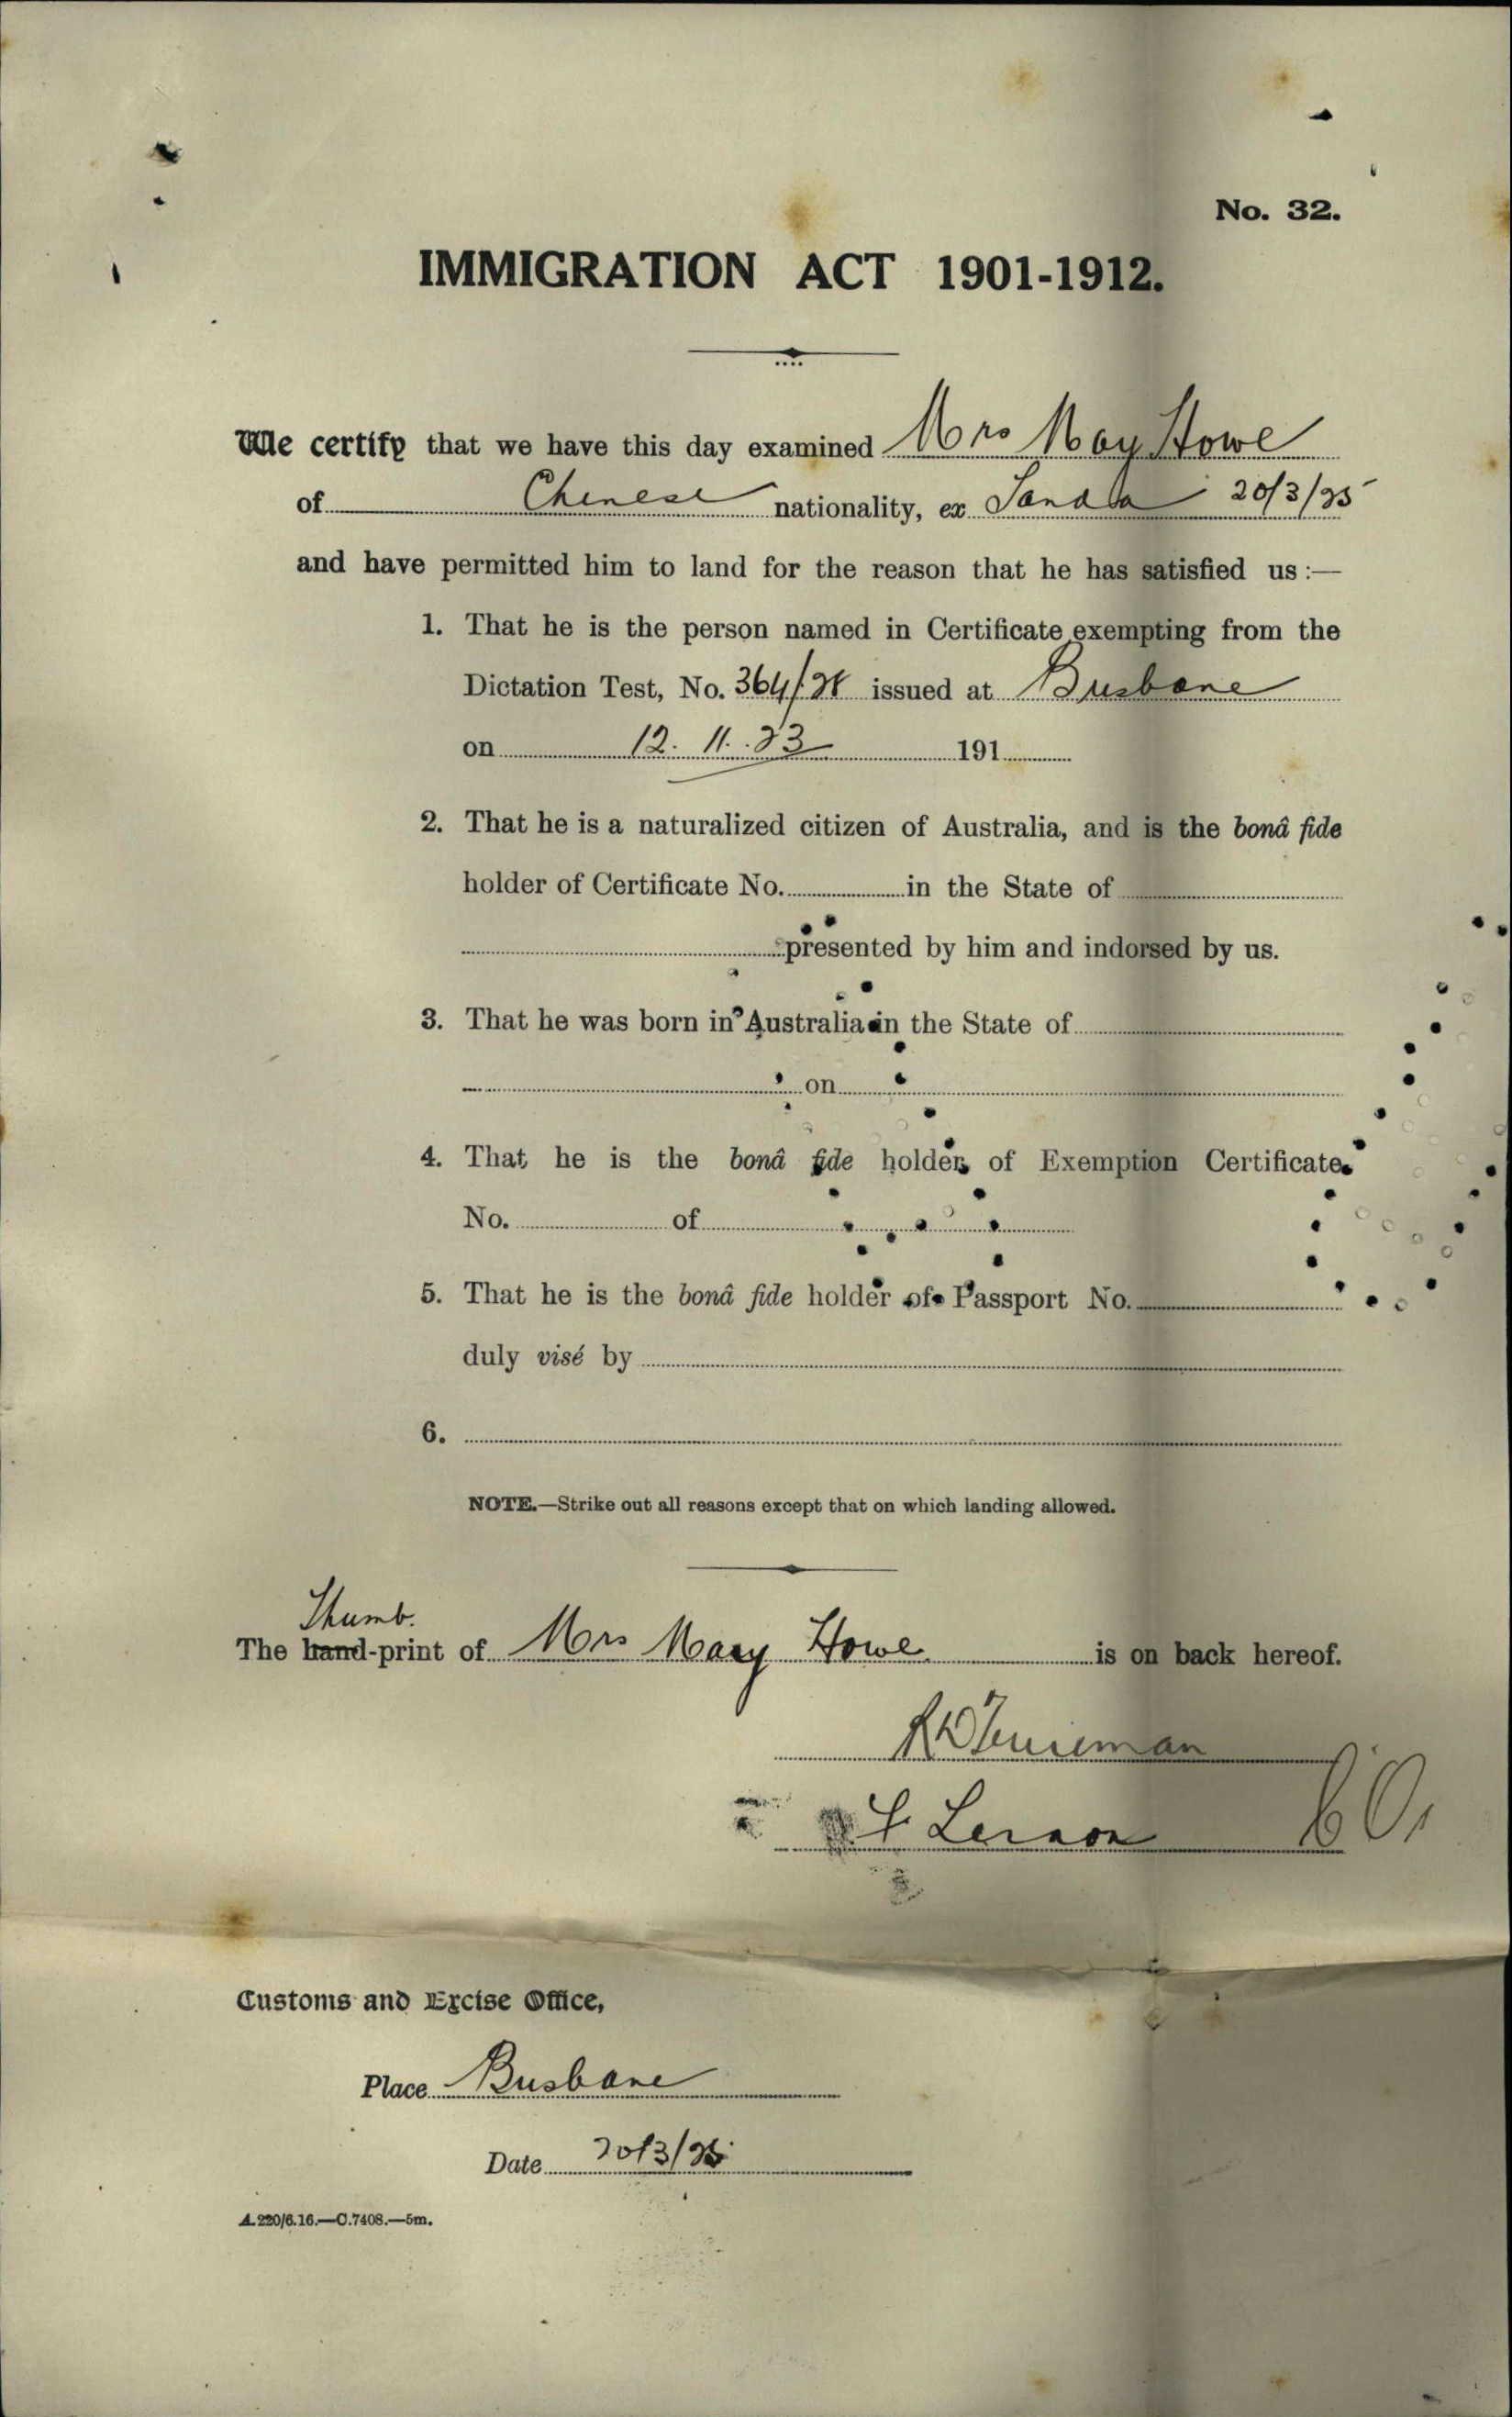 No. 32.
IMMIGRATION ACT 1901-1912.
We certify that we have this day examined Mrs May Howe
of Chinese nationality, ex Tanda 20/3/25
and have permitted him to land for the reason that he has satisfied us:—
1. That he is the person named in Certificate exempting from the
Dictation Test, No. 364/ issued at Brisbane
on 12. 11. 23 191
2. That he is a naturalized citizen of Australia, and is the bonâ fide
holder of Certificate No. in the State of
presented by him and indorsed by us.
3. That he was born in Australia in the State of
on
4. That he is the bonâ fide holder of Exemption Certificate
No. of
5. That he is the bonâ fide holder of Passport No.
duly visé by
6.
NOTE.—Strike out all reasons except that on which landing allowed.
Thumb.
The hand-print of Mrs Mary Howe is on back hereof.
Customs and Excise Office,
Place Brisbane
Date 20/3/25
A.220/6.16.—C.7408.—5m.